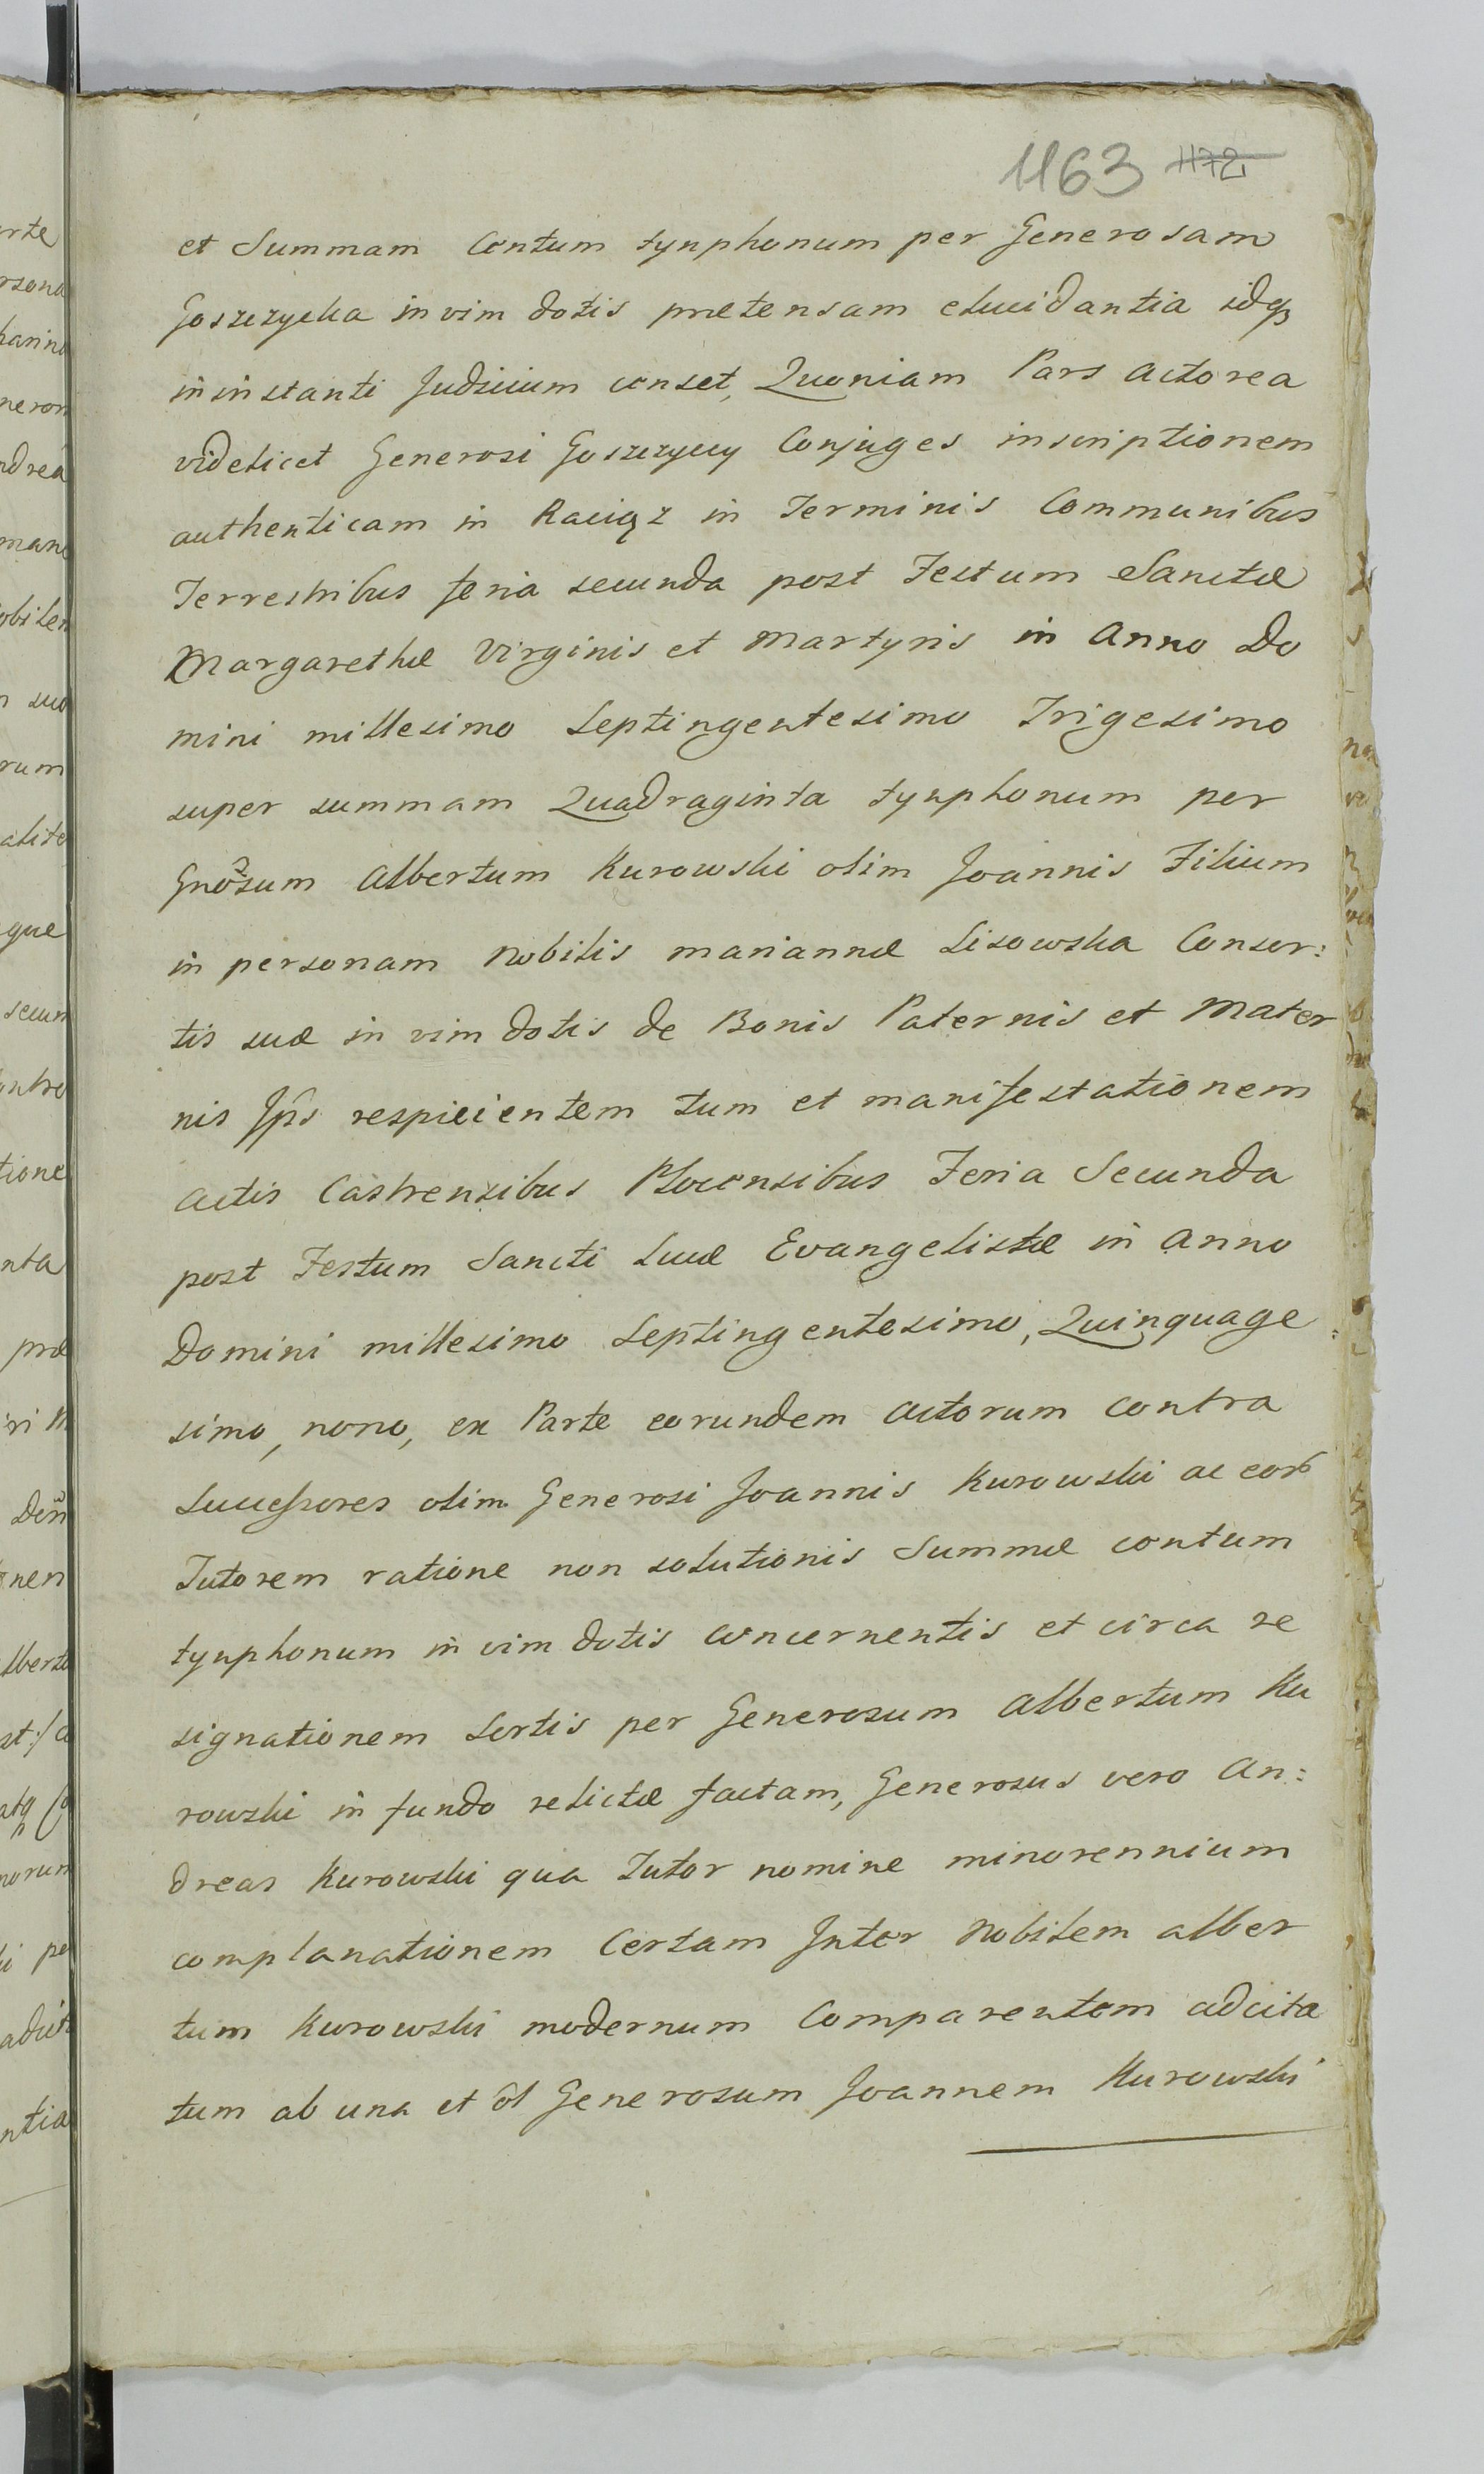 1163 1172
et Summam Centum tynphonum per Generosam
Goszczycka in vim dotis prætensam elucidantia idq3
in instanti Judicium censet, Quoniam Pars actorea
videlicet Generosi Goszczyccy Conjuges inscriptionem
authenticam in Raciąz in Terminis Communibus
Terrestribus feria secunda post Festum Sanctæ
Margarethæ Virginis et Martyris in Anno Do
mini millesimo Septingentesimo Trigesimo
super summam Quadraginta tynphonum per
Gnõsum Albertum Kurowski olim Joannis Filium
in personam Nobilis Mariannæ Lisowska Consor:
tis suæ in vim dotis de Bonis Paternis et Mater
nis Jps̃ respicientem tum et manifestationem
Actis Castrensibus Plocensibus Feria Secunda
post Festum Sancti Lucæ Evangelistæ in Anno
Domini millesimo Septingentesimo, Quinquage:
simo, nono, ex Parte eorundem Actorum contra
Successores olim Generosi Joannis Kurowski ac eor͂
Tutorem ratione non solutionis Summæ centum
tynphonum in vim dotis concernentis et circa re
signationem Sortis per Generosum Albertum Ku
rowski in fundo relictæ factam, Generosus vero An:
dreas Kurowski qua Tutor nomine minorennium
complanationem Certam Inter Nobilem Alber
tum Kurowski modernum Comparentem adcita
tum ab una et ol̃ Generosum Joannem Kurowski